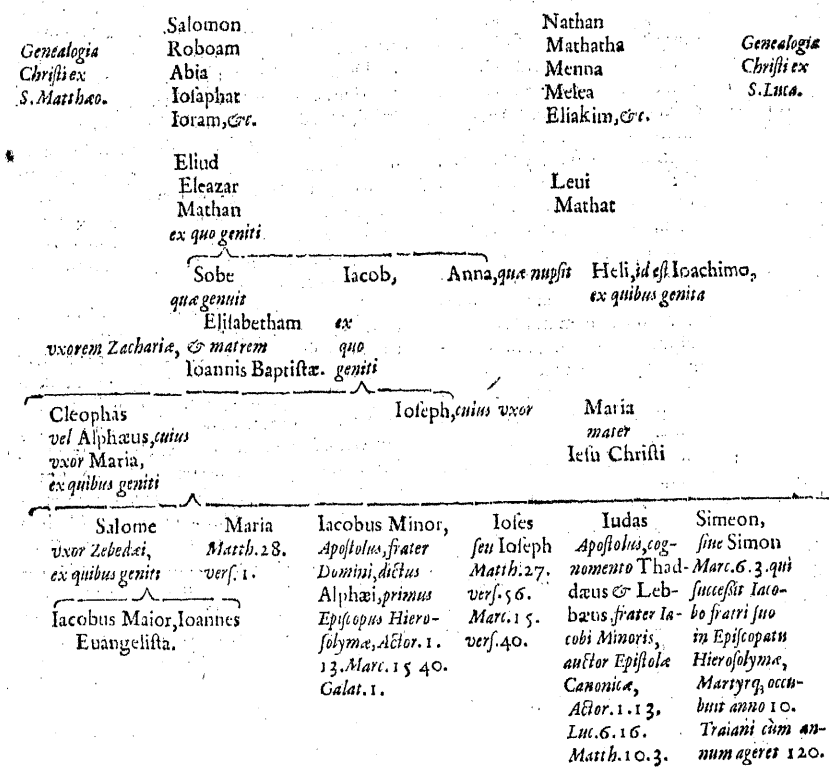 Salomon
Roboam
Abia
Iosaphat
Ioram, &c.
Genealogia
Christi ex
S. Matthæo.
Nathan
Mathatha
Menna
Melea
Eliakim, &c.
Genealogia
Christi ex
S. Luca.
Eliud
Eleazar
Mathan
ex quo geniti
Leui
Mathat
Sobe
quæ genuit
Elisabetham
vxorem Zachariæ, & matrem
Ioannis Baptistæ.
Iacob,
ex
quo
geniti
Anna, quæ nupsit
Heli, id est Ioachimo,
ex quibus genita
Cleophas
vel Alphæus, cuius
vxor Maria,
ex quibus geniti
Ioseph, cuius vxor
Maria
mater
Iesu Christi
Salome
vxor Zebedæi,
ex quibus geniti
Iacobus Maior, Ioannes
Euangelista.
Maria
Matth. 28.
vers. 1.
Iacobus Minor,
Apostolus, frater
Domini, dictus
Alphæi, primus
Episcopus Hiero-
solymæ, Actor. 1.
13. Marc. 15 40.
Galat. 1.
Ioses
seu Ioseph
Matth. 27.
vers. 56.
Marc. 15.
vers. 40.
Iudas
Apostolus, cog-
nomento Thad-
dæus & Leb-
bæus, frater Ia-
cobi Minoris,
auctor Epistolæ
Canonicæ,
Actor. 1. 13,
Luc. 6. 16.
Matth. 10. 3.
Simeon,
siue Simon
Marc. 6. 3. qui
successit Iaco-
bo fratri suo
in Episcopatu
Hierosolymæ,
Martyrq; occu-
buit anno 10.
Traiani cùm an-
num ageret 120.